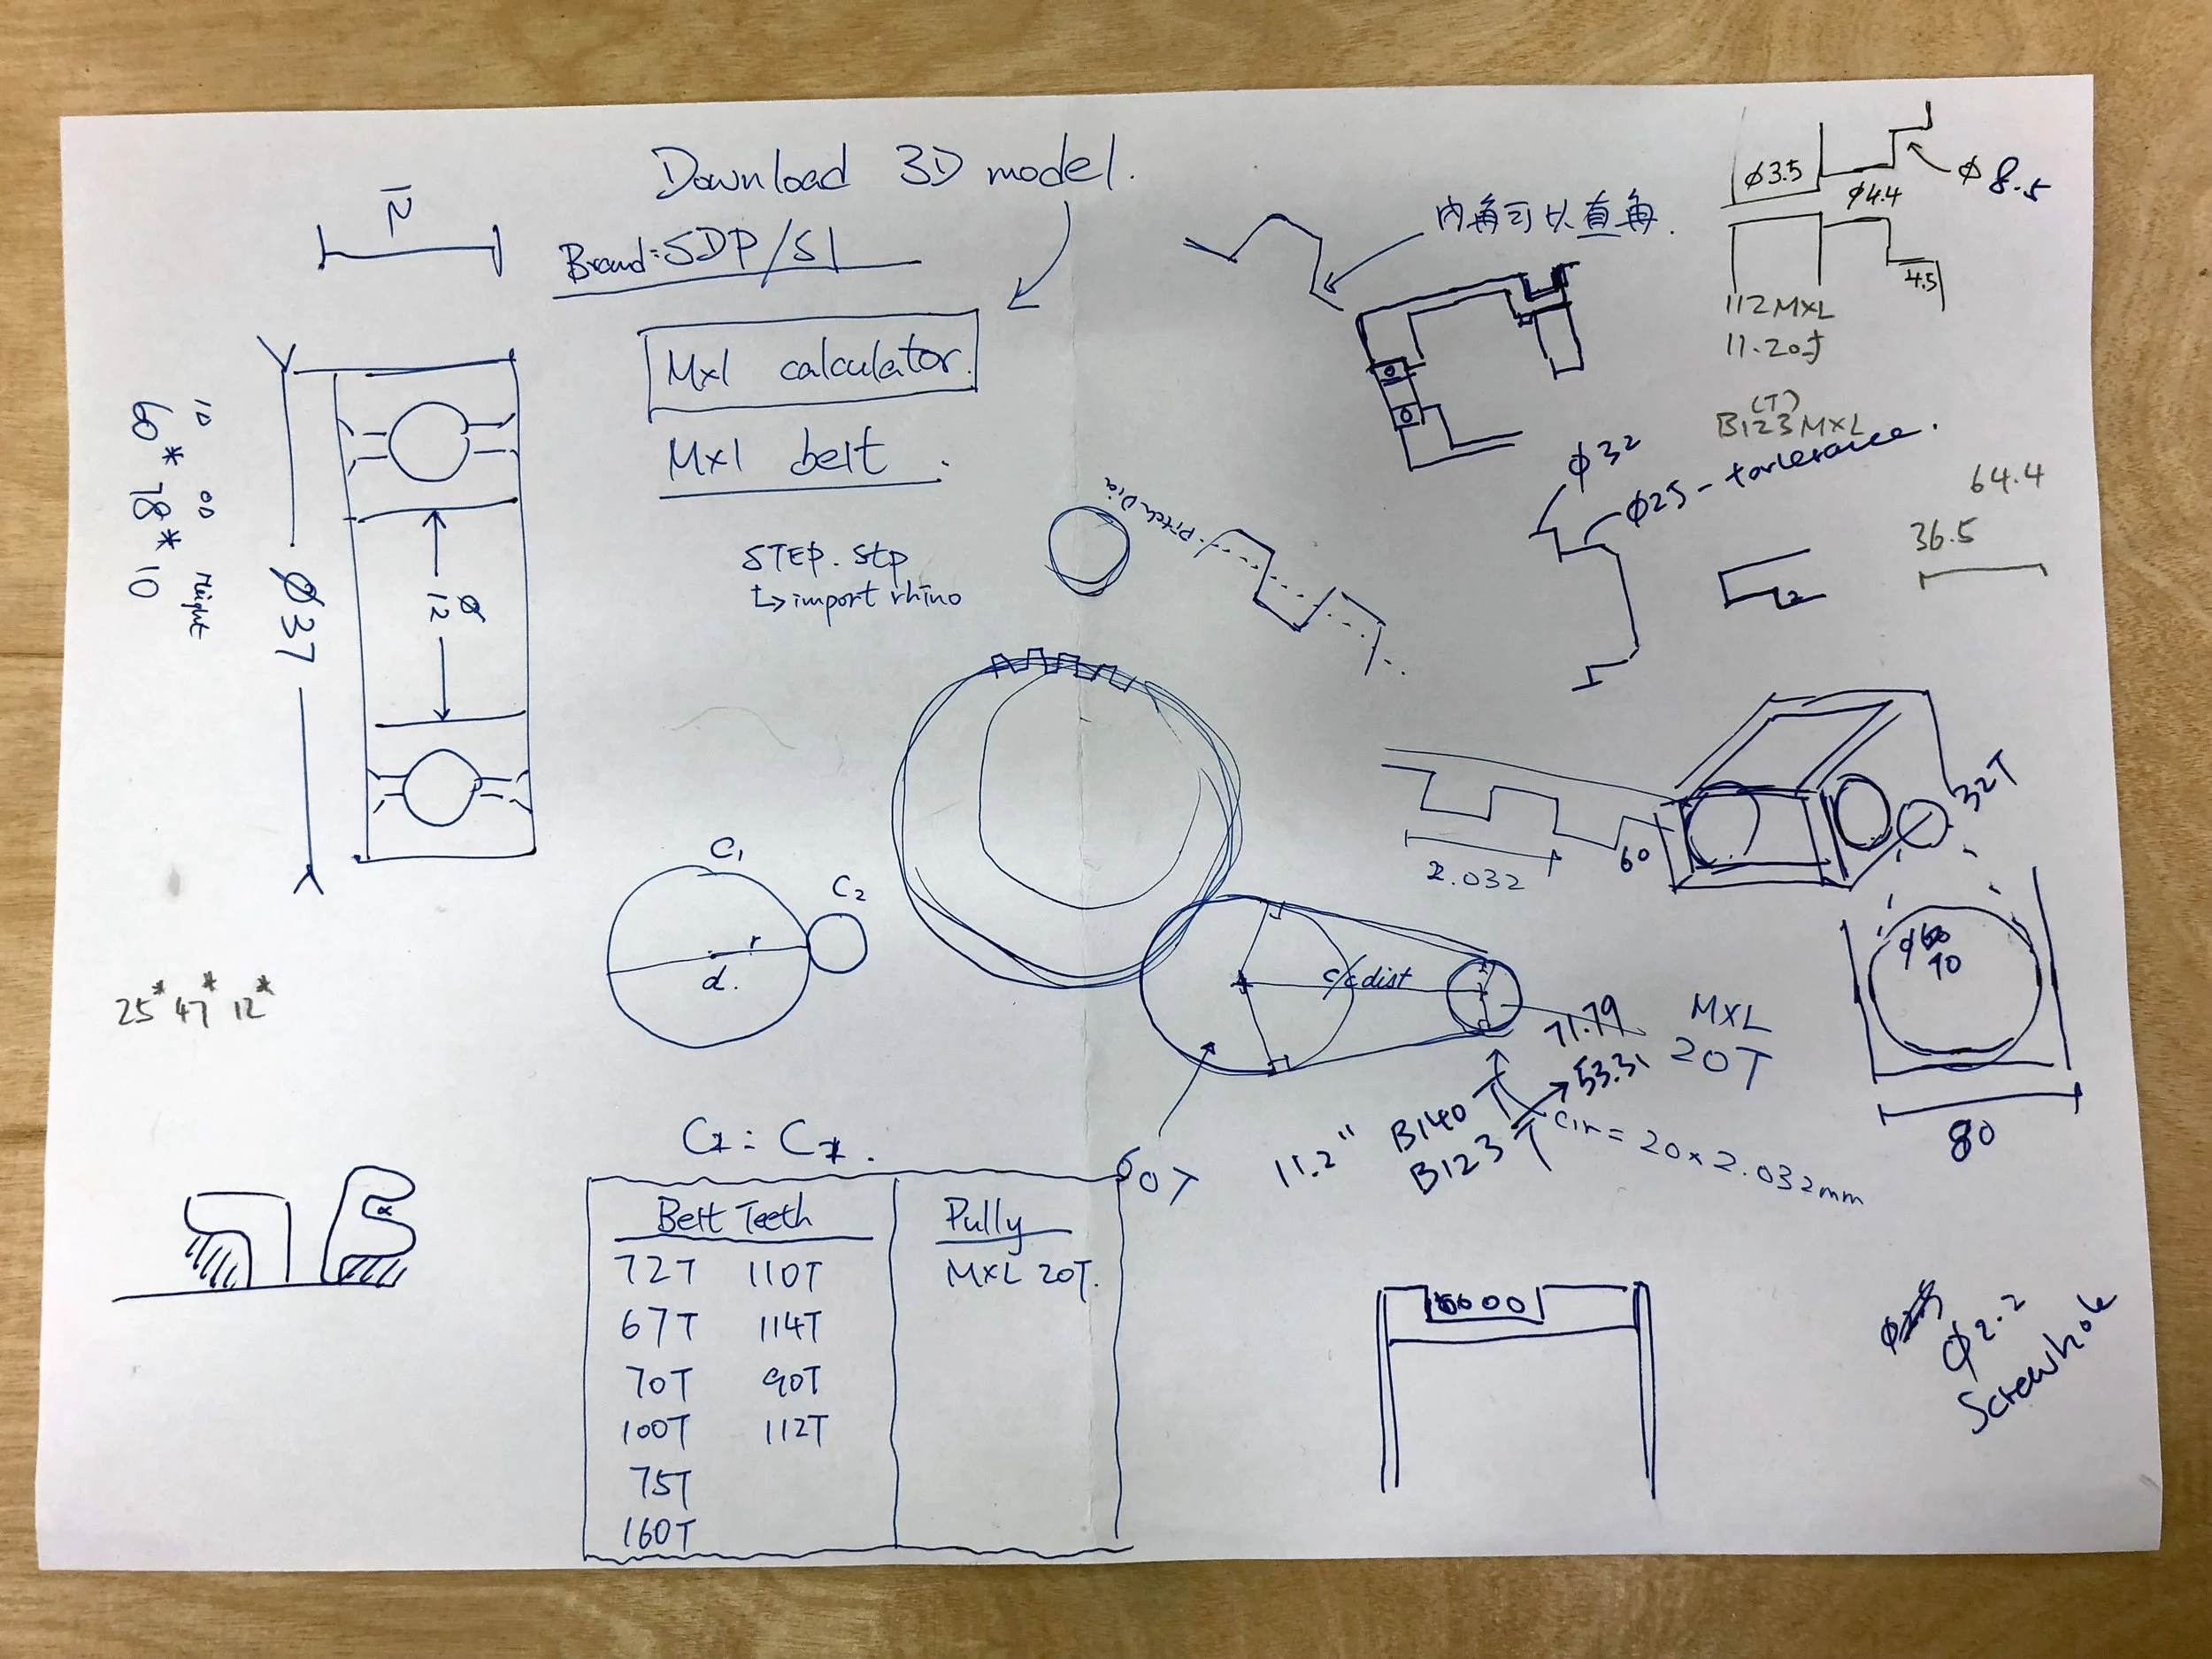 Download 3D model.
Brand: SDP/SI
Mxl calculator.
Mxl belt.
STEP. Stp
↳ import rhino
12
ID OD Height
60*78*10
ø37
ø
12
25*47*12*
内角可以直角.
ø3.5
ø4.4
ø8.5
4.5
112MXL
11.20寸
(T)
B123MXL
ø32
ø25 - torlerance.
64.4
36.5
2
Pitch Dia
2.032
60
32T
C1
C2
r
d.
c/c dist
71.79
53.31
MXL
20T
11.2" B140T
B123T
Cir = 20 × 2.032mm
60T
70
80
Belt Teeth
Pully
72T 110T
MXL 20T.
67T 114T
70T 90T
100T 112T
75T
160T
ø2.2
Screwhole